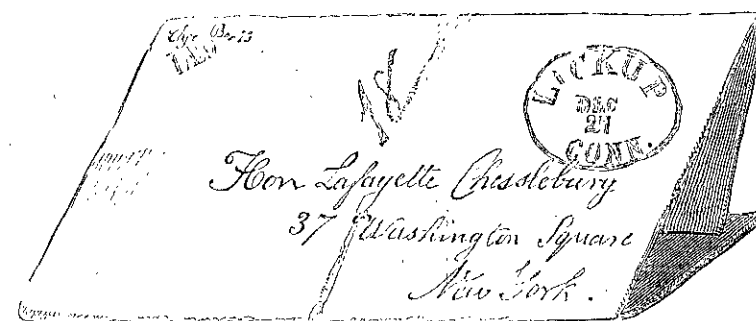 18
LICKUP
DEC
27
CONN.
Hon Lafayette Chesslebury
37 Washington Square
New York.